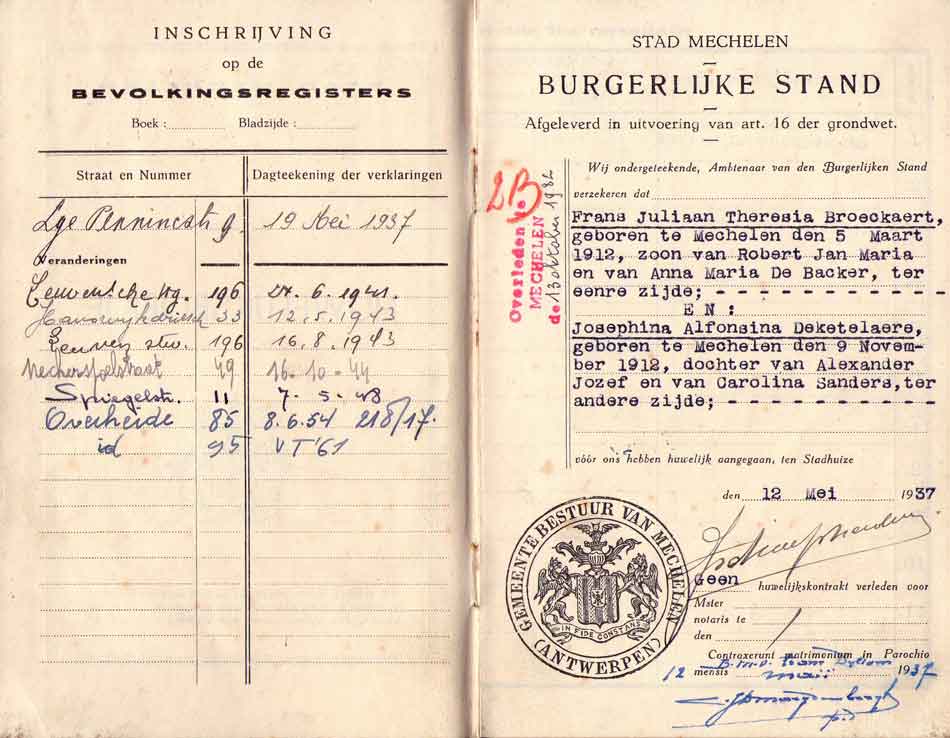 INSCHRIJVING
op de
BEVOLKINGSREGISTERS
Boek : Bladzijde :
Straat en Nummer Dagteekening der verklaringen
Lge Pennincstr 9. 19 Mei 1937
Veranderingen
196 24.6.1941.
33 12.5.1943
196 16.8.1943
Nekkerspoelstraat 49 16-10-44
Spiegelstr. 11 7-5-48
Overheide 85 8.6.54 218/17.
id 95 VT'61
STAD MECHELEN
BURGERLIJKE STAND
Afgeleverd in uitvoering van art. 16 der grondwet.
2B
Overleden te
MECHELEN
de 13 oktober 1982
Wij ondergeteekende, Ambtenaar van den Burgerlijken Stand
verzekeren dat
Frans Juliaan Theresia Broeckaert,
geboren te Mechelen den 5 Maart
1912, zoon van Robert Jan Maria
en van Anna Maria De Backer, ter
eenre zijde; - - - - - - - - - - -
EN :
Josephina Alfonsina Deketelaere,
geboren te Mechelen den 9 Novem-
ber 1912, dochter van Alexander
Jozef en van Carolina Sanders,ter
andere zijde; - - - - - - - - - -
vóór ons hebben huwelijk aangegaan, ten Stadhuize
den 12 Mei 1937
GEMEENTE BESTUUR VAN MECHELEN
IN FIDE CONSTANS
(ANTWERPEN)
Geen huwelijkskontrakt verleden voor
Mster
notaris te
den
Contraxerunt matrimonium in Parochio
B.M.V.
12 mensis maii 1937